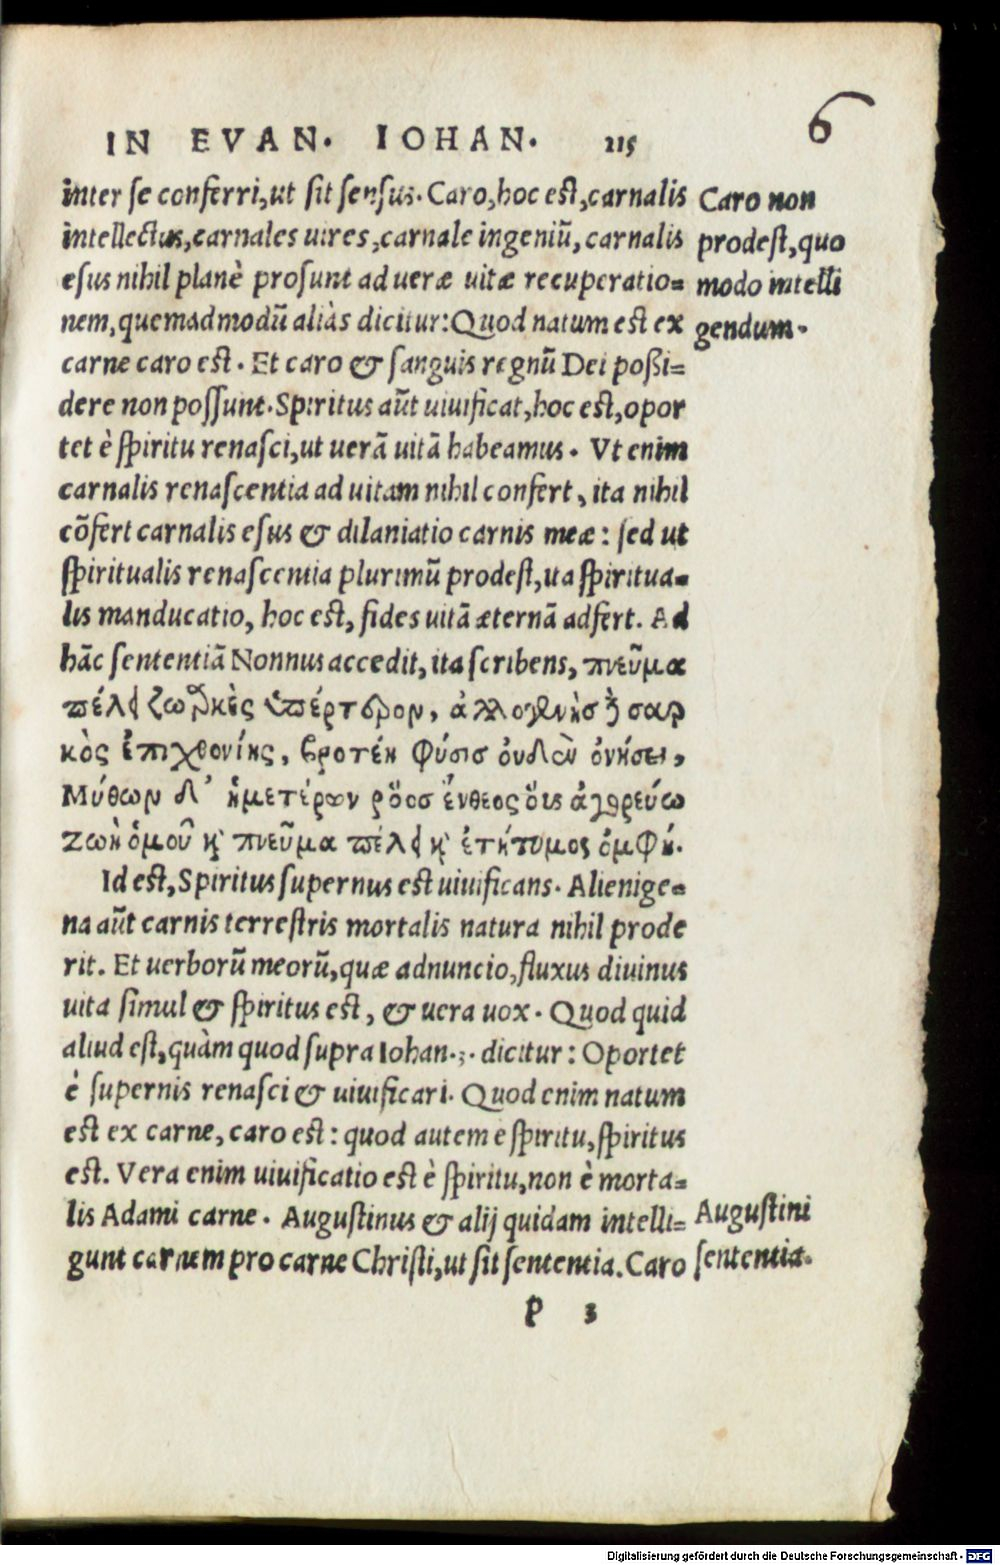 6
IN EVAN. IOHAN. 215
inter se conferri, ut sit sensus. Caro, hoc est, carnalis
intellectus, carnales uires, carnale ingeniũ, carnalis
esus nihil planè prosunt ad ueræ uitæ recuperatio=
nem, quemadmodũ aliàs dicitur: Quod natum est ex
carne caro est. Et caro & sanguis regnũ Dei poßi=
dere non possunt. Spiritus aũt uiuificat, hoc est, opor
tet è spiritu renasci, ut uerã uitã habeamus. Vt enim
carnalis renascentia ad uitam nihil confert, ita nihil
cõfert carnalis esus & dilaniatio carnis meæ: sed ut
spiritualis renascentia plurimũ prodest, ita spiritua=
lis manducatio, hoc est, fides uitã æternã adfert. Ad
hãc sententiã Nonnus accedit, ita scribens, πνεῦμα
πέλει ζωαρκὲς ὑπέρτερον, ἀλλογενὴσ δὲ σαρ
κὸς ἐπιχθονίης, βροτέη φύσισ οὐδὲν ὀνήσει,
Μύθων δ' ἡμετέρων ῥόοσ ἔνθεος ὅυς ἀγορεύω
Ζωὴ ὁμοῦ καὶ πνεῦμα πέλει καὶ ἐτήτυμος ὀμφή.
Id est, Spiritus supernus est uiuificans. Alienige=
na aũt carnis terrestris mortalis natura nihil prode
rit. Et uerborũ meorũ, quæ adnuncio, fluxus diuinus
uita simul & spiritus est, & uera uox. Quod quid
aliud est, quàm quod supra Iohan. 3. dicitur: Oportet
è supernis renasci & uiuificari. Quod enim natum
est ex carne, caro est: quod autem e spiritu, spiritus
est. Vera enim uiuificatio est è spiritu, non è morta=
lis Adami carne. Augustinus & alij quidam intelli=
gunt carnem pro carne Christi, ut sit sententia. Caro
P 3
Caro non
prodest, quo
modo intelli
gendum.
Augustini
sententia.
Digitalisierung gefördert durch die Deutsche Forschungsgemeinschaft - DFG